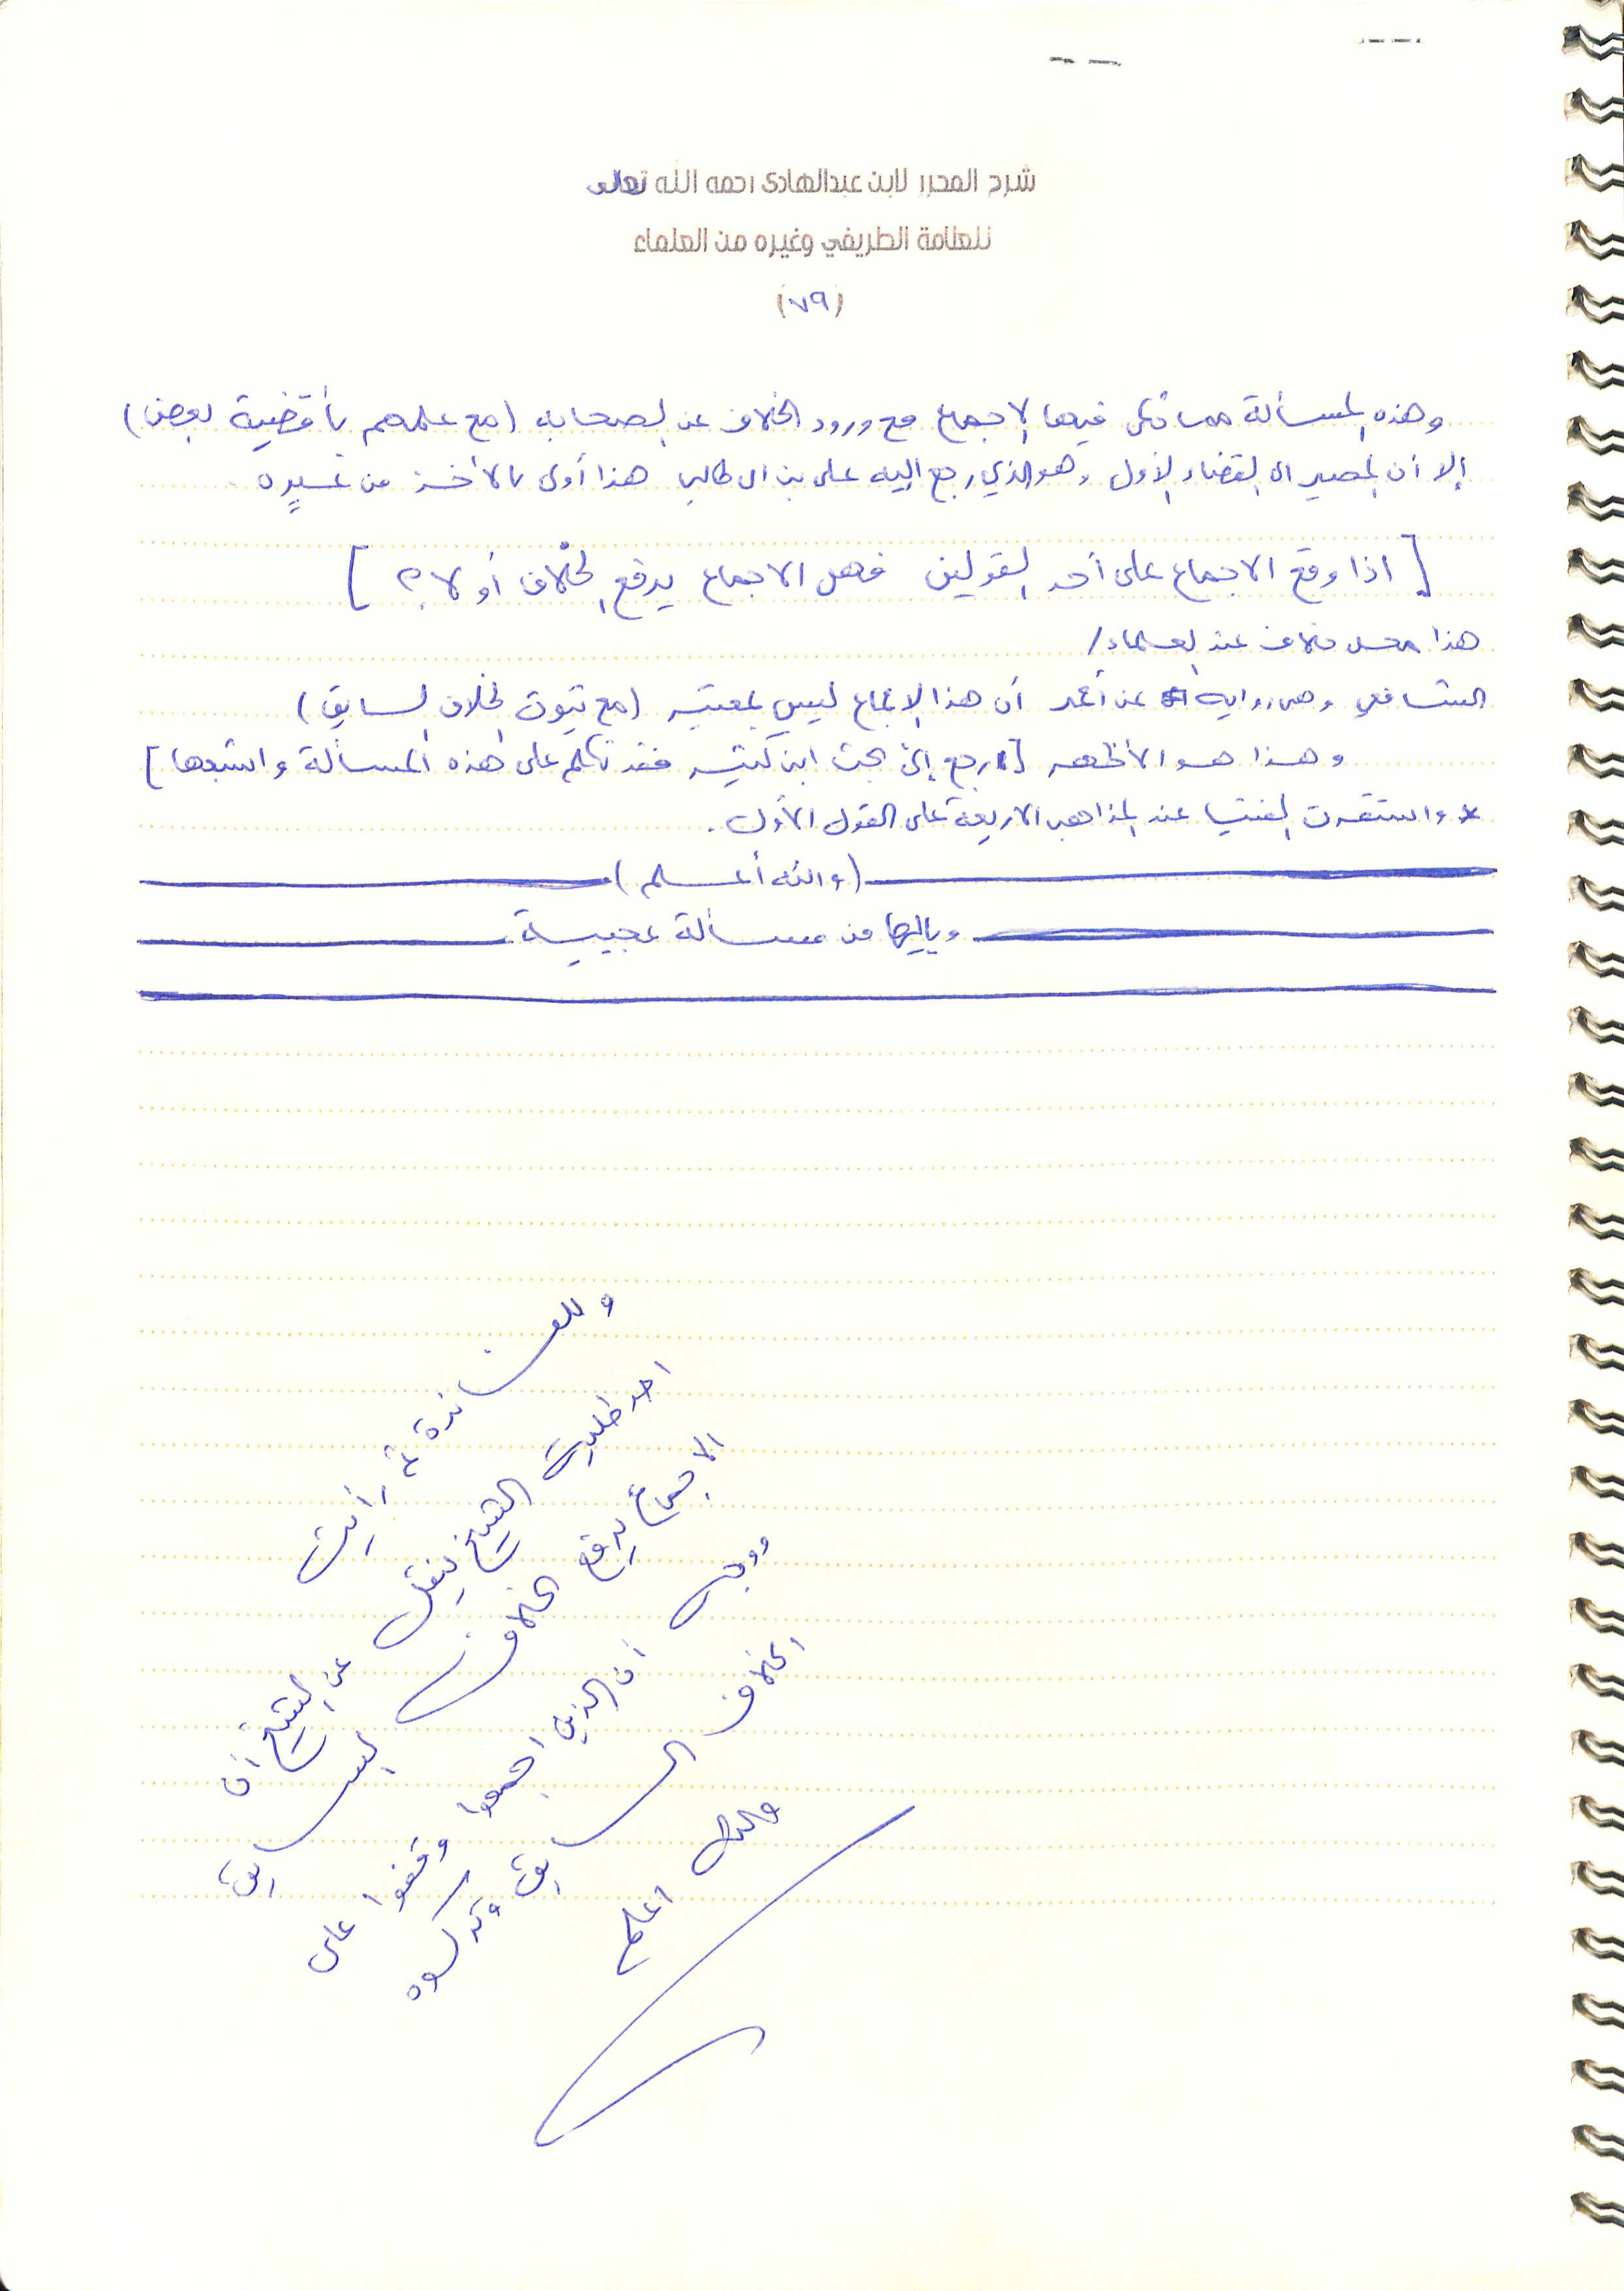 شرح المحرر لابن عبدالهادي رحمه الله تعالى
للعلامة الطريفي وغيره من العلماء
(٧٩)
وهذه المسألة مما حكى فيها الاجماع مع ورود الخلاف عن الصحابه (مع علمهم بأقضية بعض)
إلا أن المصير الى القضاء الأول وهو الذي رجع اليه على بن ابى طالب هذا أولى بالأخذ من غيره.
[اذا وقع الاجماع على أحد القولين فهل الاجماع يرفع الخلاف أو لا؟]
هذا محل خلاف عند العلماء/
الشافعي وهى رواية عن أحمد أن هذا الإجماع ليس بمعتبر (مع ثبوت الخلاف السابق)
وهذا هو الأظهر [ارجع إلى بحث ابن كثير فقد تكلم على هذه المسألة واشبعها]
* واستقرت الفتيا عند المذاهب الاربعة على القول الأول.
(والله أعلم)
ويالها من مسألة عجيبة
وللفائدة ثم رأيت
احد طلبة الشيخ ينقل عن الشيخ أن
الاجماع يرفع الخلاف السابق
ووجه أن الذين اجمعوا وقفوا على
الخلاف السابق وتركوه
والله اعلم